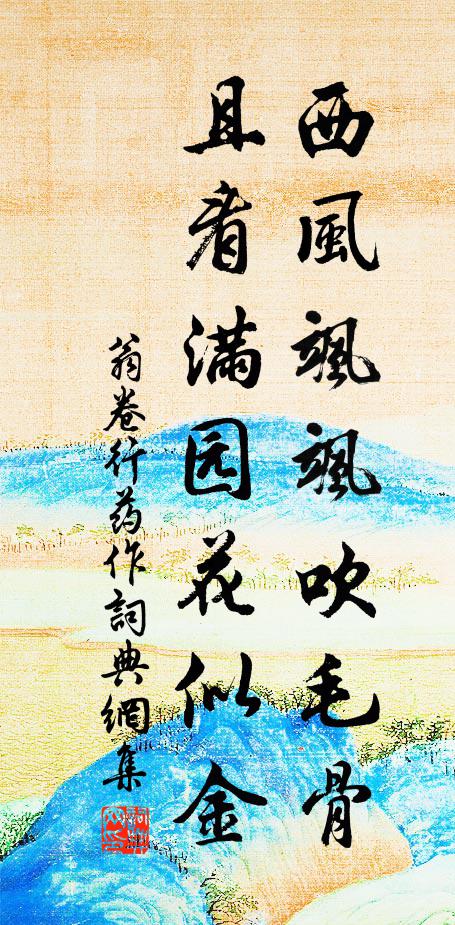 西風颯颯吹毛骨
且看满园花似金
翁卷行药作詞典網集